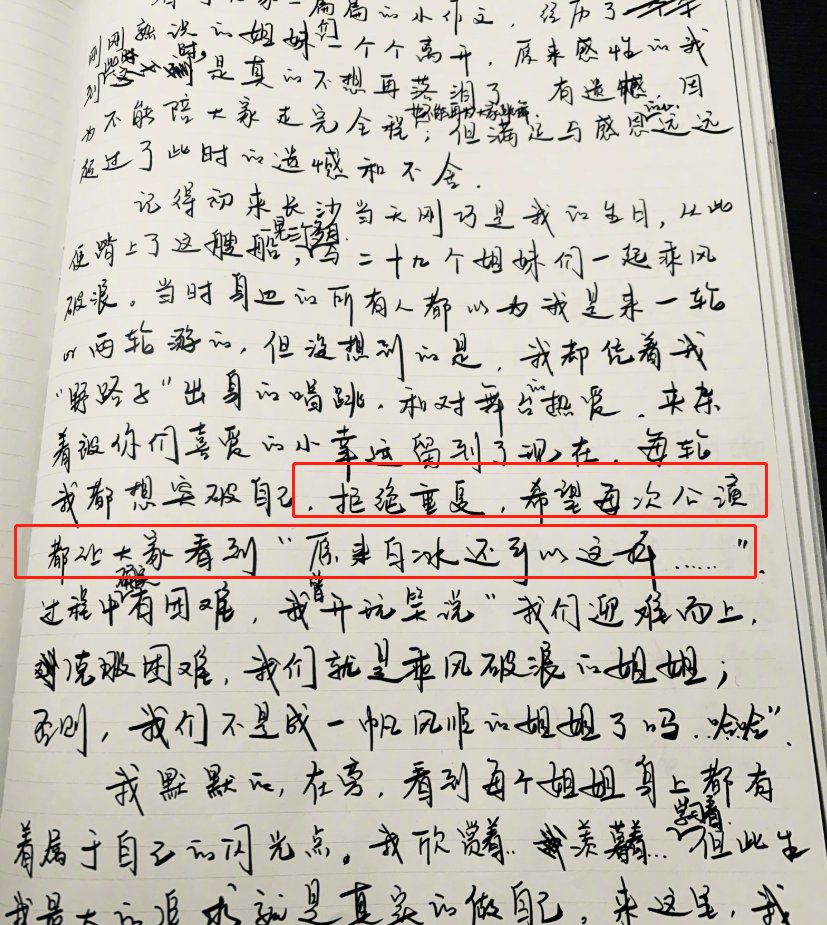 一篇篇的小作文，经历了
刚刚熟识的姐妹们一个个离开，原来感性的我
到此时，是真的不想再落泪了。有遗憾，因
为不能陪大家走完全程，但满足与感恩远远
超过了此时的遗憾和不舍.
记得初来长沙当天刚巧是我的生日，从此
便踏上了这艘船，一晃三个多月与二十九个姐妹们一起乘风
破浪。当时身边的所有人都以为我是来一轮
or两轮游的，但没想到的是，我都凭着我
“野路子”出身的唱跳，和对舞台的热爱，夹杂
着被你们喜爱的小幸运留到了现在，每轮
我都想突破自己，拒绝重复，希望每次公演
都让大家看到“原来白冰还可以这样……”.
过程中有困难，我曾开玩笑说“我们迎难而上，
克服困难，我们就是乘风破浪的姐姐；
否则，我们不是成一帆风顺的姐姐了吗..哈哈”.
我默默的，在旁，看到每个姐姐身上都有
着属于自己的闪光点。我欣赏着..羡慕着...学习着.但此生
我最大的追求就是真实的做自己，来这里，我